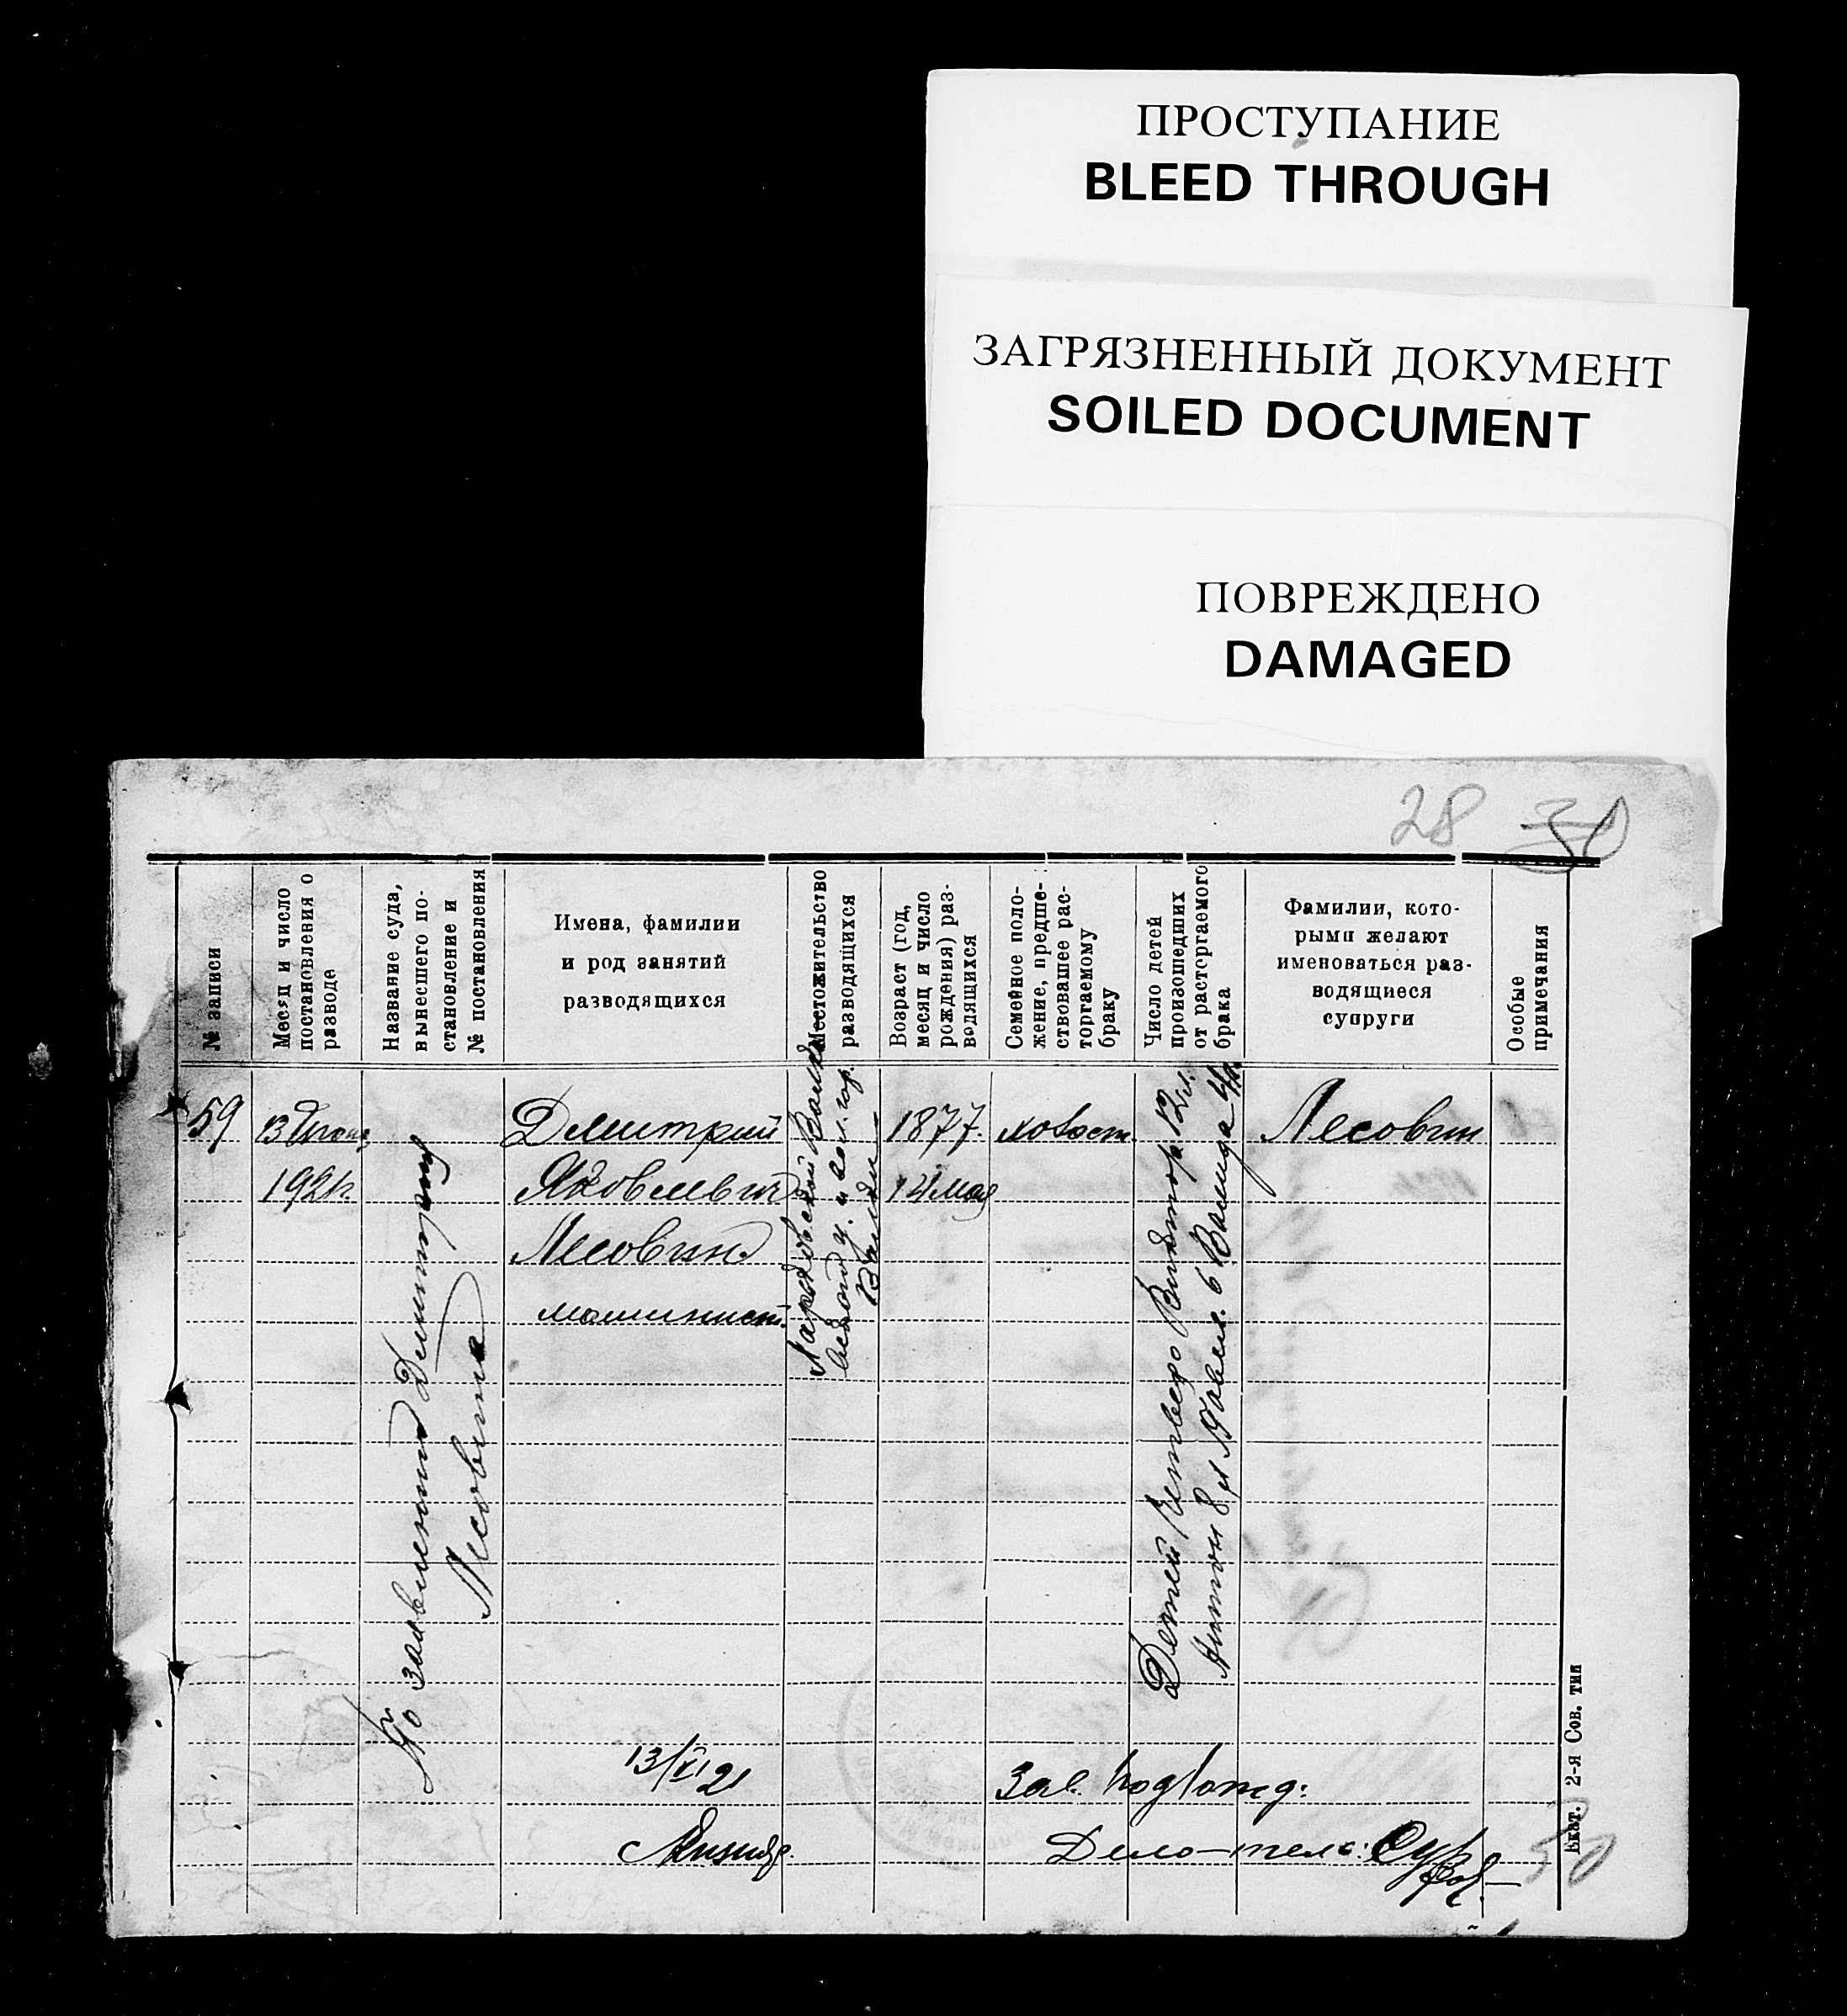 ПРОСТУПАНИЕ
BLEED THROUGH
ЗАГРЯЗНЕННЫЙ ДОКУМЕНТ
SOILED DOCUMENT
ПОВРЕЖДЕНО
DAMAGED
28 30
№ записи
Месяц и число
постановления о
разводе
Название суда,
вынесшего по-
становление и
№ постановления
Имена, фамилии
и род занятий
разводящихся
Местожительство
разводящихся
Возраст (год,
месяц и число
рождения) раз-
водящихся
Семейное поло-
жение, предше-
ствовавшее рас-
торгаемому
браку
Число детей
происшедших
от расторгаемого
брака
Фамилии, кото-
рыми желают
именоваться раз-
водящиеся
супруги
Особые
примечания
59
13
1921
По заявлению Дмитрия
Лесовина
Дмитрий
Яковлевич
Лесовин
машинист
1877.
14 мая
холост.
Детей четверо Виктор 12 л.
8 л 6 4
Лесовин
13/VI 21
Зав. подотд:
Дело-тель:
50
Екат. 2-я Сов. тип